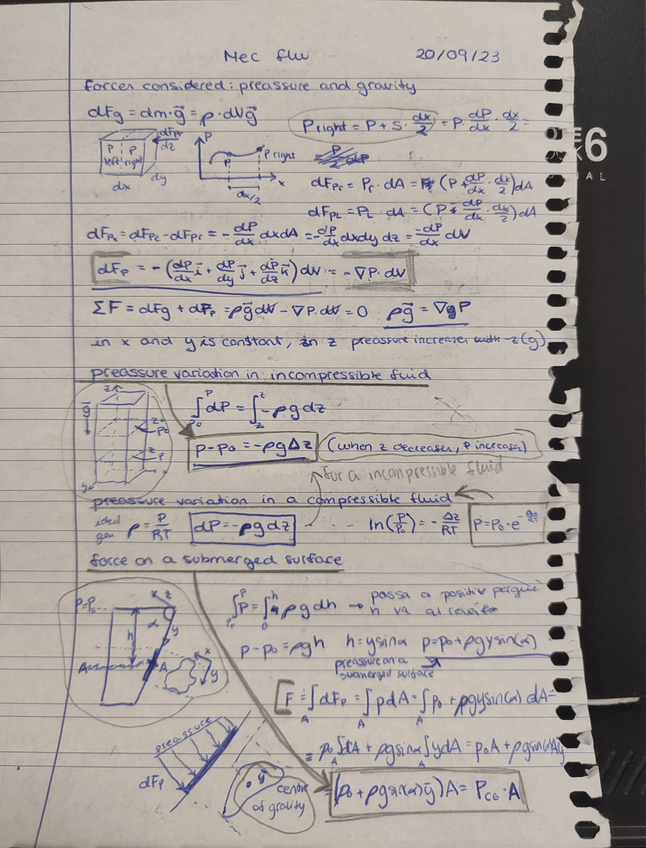 Mec flu 20/09/23
forces considered: preassure and gravity
dFg = dm·g⃗ = ρ·dV g⃗
P right = P + S · dx/2 = P dP/dx · dx/2 =
dFpr
dz
P P
left right
dx dy
P
P
P right
x
dx/2
dFPr = Pr · dA = (P + dP/dx · dx/2) dA
dFPL = PL · dA = (P - dP/dx · dx/2) dA
dFPx = dFPL - dFPr = - dP/dx dx dA = - dP/dx dx dy dz = - dP/dx dV
dFP = - (dP/dx i⃗ + dP/dy j⃗ + dP/dz k⃗) dV = - ∇P · dV
ΣF = dFg + dFP = ρg⃗ dV - ∇P · dV = 0 ρg⃗ = ∇P
in x and y is constant, in z preassure increases with -z (g)
preassure variation in incompressible fluid
∫ dP = ∫ -ρ g dz
P - P₀ = -ρgΔz (when z decreases, P increases)
for a incompressible fluid
preassure variation in a compressible fluid
ideal gas ρ = P/RT dP = -ρg dz ln(P/P₀) = - Δz/RT P = P₀ · e
force on a submerged surface
P=P₀
z
α
y
h
A
A
x
y
∫ P = ∫ ρ g dh → passa a positiu perquè
h va al revés
P - P₀ = ρgh h = y sinα P = P₀ + ρgy sin(α)
preassure on a
submerged surface
F = ∫ dFP = ∫ P dA = ∫ P₀ + ρgy sin(α) dA =
A A A
preassure
dFP
= P₀ ∫ dA + ρg sinα ∫ y dA = P₀A + ρg sin(α)Aȳ
A A
ȳ
centre
of gravity
= (P₀ + ρg sin(α) ȳ) A = PCG · A
6